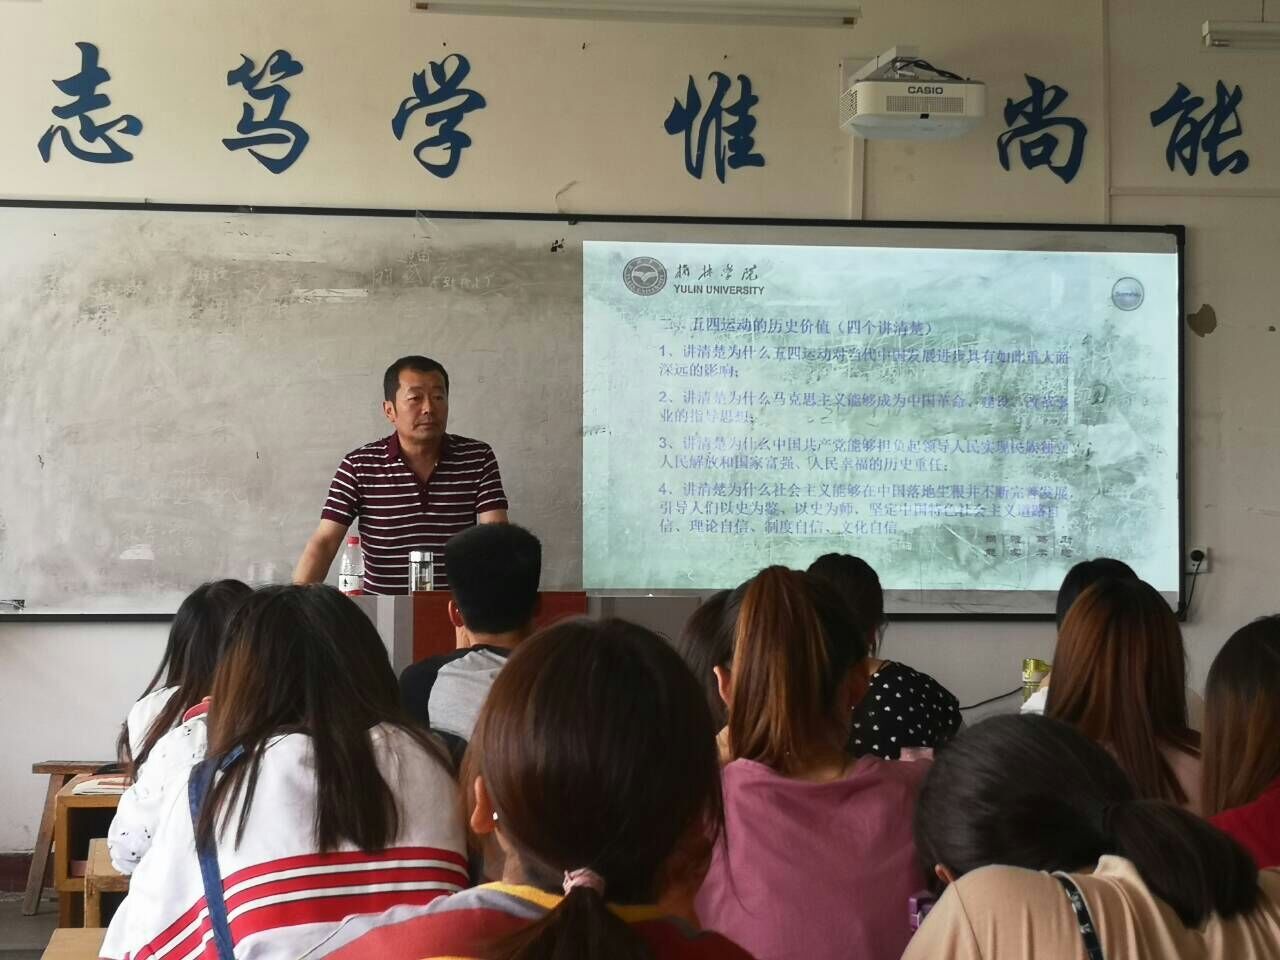 志 笃 学 惟 尚 能
CASIO
榆林学院
YULIN UNIVERSITY
二、五四运动的历史价值（四个讲清楚）
1、讲清楚为什么五四运动对当代中国发展进步具有如此重大而
深远的影响；
2、讲清楚为什么马克思主义能够成为中国革命、建设、改革事
业的指导思想；
3、讲清楚为什么中国共产党能够担负起领导人民实现民族独立、
人民解放和国家富强、人民幸福的历史重任；
4、讲清楚为什么社会主义能够在中国落地生根并不断完善发展，
引导人们以史为鉴、以史为师，坚定中国特色社会主义道路自
信、理论自信、制度自信、文化自信。